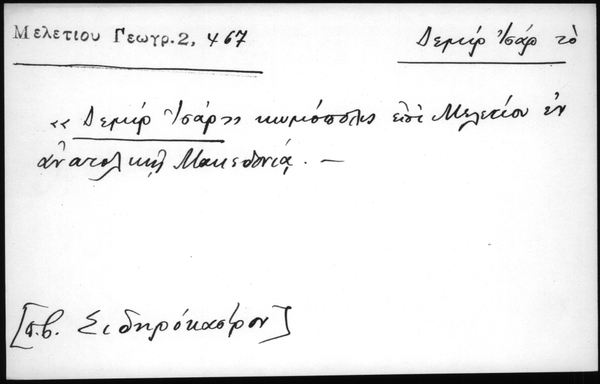 Μελετιου Γεωγρ.2, 467
Δεμίρ Ἰσάρ τὸ
« Δεμίρ Ἰσάρ» κωμόπολις ἐπὶ Μελετίου ἐν
ἀνατολικῇ Μακεδονίᾳ. —
[π.β. Σιδηρόκαστρον]